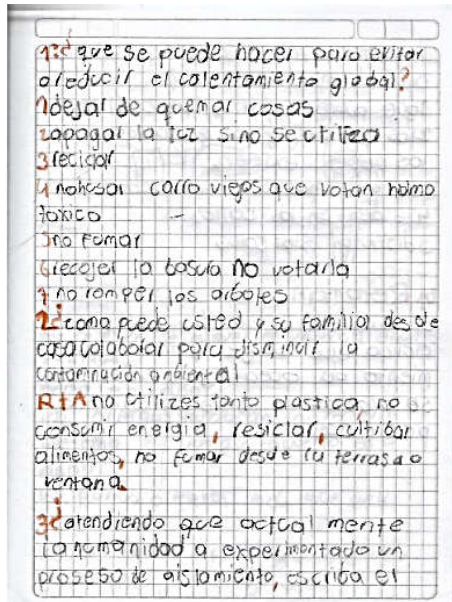 1:¿que se puede hacer para evitar
o reducir el calentamiento global?
1 dejar de quemar cosas
2 apagar la luz sino se utiliza
3 reciclar
4 no husar carro viejos que votan homo
toxico
5 no fumar
6 recojer la basura no votarla
7 no romper los arboles
2¿como puede usted y su familiar desde
casa colabolar para disminuir la
contaminación anbiental
RtA no utilizes tanto plastica no
consumir energia, resiclar, cultibar
alimentos, no fumar desde tu terrasa o
ventana.
3¿atendiendo que actual mente
la humanidad a experimentado un
proseso de aislamiento, escriba el